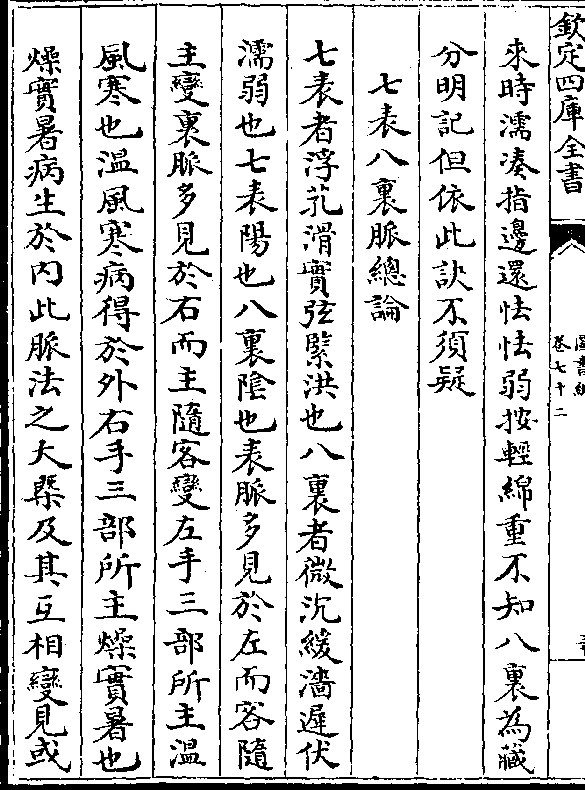 欽定四庫全書
卷七十二
來時濡湊指邊還怯怯弱按輕綿重不知八裏為臓
分明記但依此訣不須疑
七表八裏脈總論
七表者浮芤滑實弦緊洪也八裏者微沉緩濇遲伏
濡弱也七表陽也八裏陰也表脈多見於左而客隨
主變裏脈多見於右而主隨客變左手三部所主溫
風寒也溫風寒病得於外右手三部所主燥實暑也
燥實暑病生於内此脈法之大槩及其互相變見或